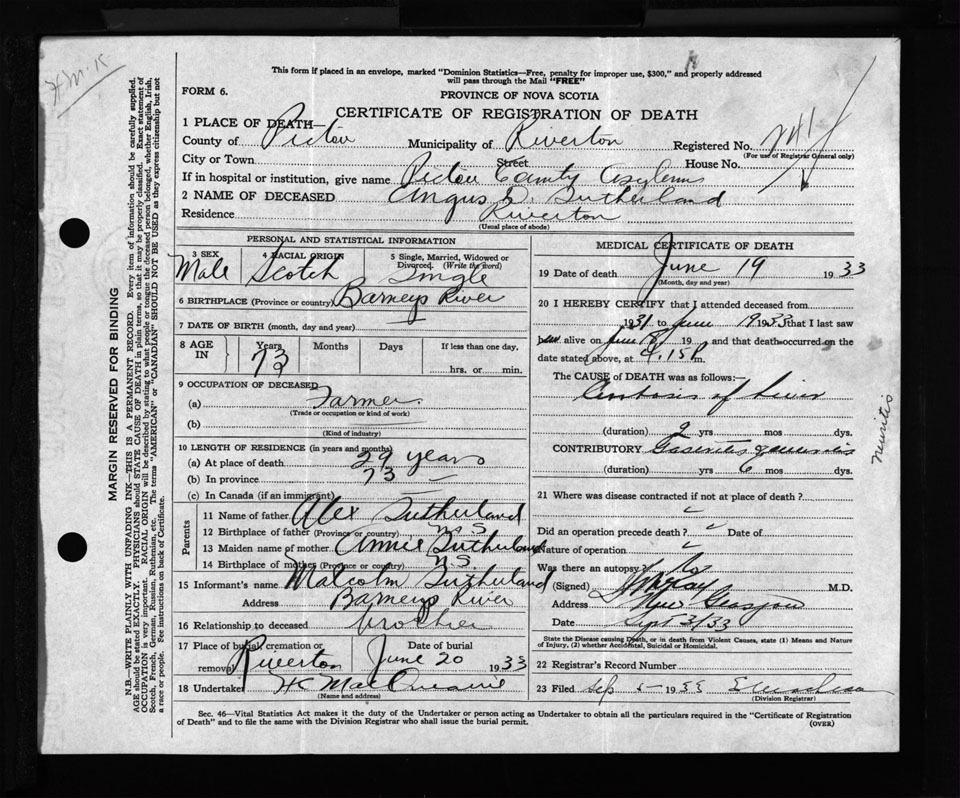 H.M.K
This form if placed in an envelope, marked "Dominion Statistics—Free, penalty for improper use, $300," and properly addressed
will pass through the Mail "FREE"
FORM 6.
PROVINCE OF NOVA SCOTIA
CERTIFICATE OF REGISTRATION OF DEATH
1 PLACE OF DEATH—
County of Pictou Municipality of Riverton Registered No.
(For use of Registrar General only)
City or Town Street House No.
If in hospital or institution, give name Pictou County Asylum
2 NAME OF DECEASED Angus D. Sutherland
Residence Riverton
(Usual place of abode)
PERSONAL AND STATISTICAL INFORMATION
3 SEX 4 RACIAL ORIGIN 5 Single, Married, Widowed or
Divorced. (Write the word)
Male Scotch Single
6 BIRTHPLACE (Province or country) Barneys River
7 DATE OF BIRTH (month, day and year)
8 AGE IN Years Months Days If less than one day.
73 hrs. or min.
9 OCCUPATION OF DECEASED
(a) Farmer
(Trade or occupation or kind of work)
(b)
(Kind of industry)
10 LENGTH OF RESIDENCE (in years and months)
(a) At place of death 29 years
(b) In province 73 —
(c) In Canada (if an immigrant)
Parents
11 Name of father Alex Sutherland
12 Birthplace of father (Province or country) N.S
13 Maiden name of mother Annie Sutherland
14 Birthplace of mother (Province or country) N.S.
15 Informant's name Malcolm Sutherland
Address Barneys River
16 Relationship to deceased brother
17 Place of burial, cremation or Date of burial
removal Riverton June 20 1933
18 Undertaker H MacQuarrie
(Name and address)
MEDICAL CERTIFICATE OF DEATH
19 Date of death June 19 1933
(Month, day and year)
20 I HEREBY CERTIFY that I attended deceased from
1931 to June 19 1933 that I last saw
alive on June 19 and that death occurred on the
date stated above, at 4.15 P m.
The CAUSE of DEATH was as follows:
Cirrhosis of Liver
(duration) 2 yrs mos dys.
CONTRIBUTORY Gastritis
(duration) 6 yrs mos dys.
neuritis
21 Where was disease contracted if not at place of death?
Did an operation precede death? Date of
Nature of operation
Was there an autopsy? No
(Signed) M.D.
Address New Glasgow
Date Sept 3/33
State the Disease causing Death, or in death from Violent Causes, state (1) Means and Nature
of Injury, (2) whether Accidental, Suicidal or Homicidal.
22 Registrar's Record Number
23 Filed Sep 5 1933
(Division Registrar)
Sec. 46—Vital Statistics Act makes it the duty of the Undertaker or person acting as Undertaker to obtain all the particulars required in the "Certificate of Registration
of Death" and to file the same with the Division Registrar who shall issue the burial permit. (OVER)
MARGIN RESERVED FOR BINDING
N.B.—WRITE PLAINLY WITH UNFADING INK—THIS IS A PERMANENT RECORD. Every item of information should be carefully supplied.
AGE should be stated EXACTLY. PHYSICIANS should STATE CAUSE OF DEATH in plain terms, so that it may be properly classified. Exact statement of
OCCUPATION is very important. RACIAL ORIGIN will be described by stating to what people or tongue the deceased person belonged, whether English, Irish,
Scotch, French, German, Russian, Ruthenian, etc. The terms "AMERICAN" or "CANADIAN" SHOULD NOT BE USED as they express citizenship but not
a race or people. See instructions on back of Certificate.